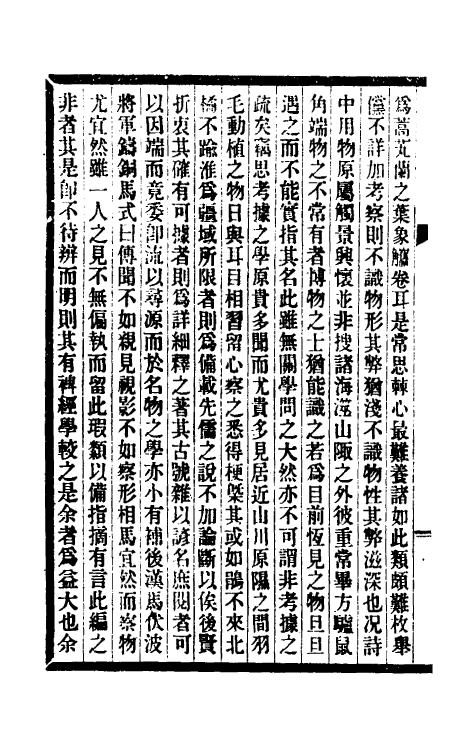 爲蒿芄蘭之葉象觿卷耳是常思棘心最難養諸如此類頗難枚舉
儻不詳加考察則不識物形其弊猶淺不識物性其弊滋深也况詩
中用物原屬觸景興懷並非搜諸海澨山陬之外彼重常畢方驢鼠
角端物之不常有者博物之士猶能識之若爲目前恆見之物旦旦
遇之而不能實指其名此雖無關學問之大然亦不可謂非考據之
疏矣竊思考據之學原貴多聞而尤貴多見居近山川原隰之間羽
毛動植之物日與耳目相習留心察之悉得梗槩其或如鶻不來北
橘不踰淮爲疆域所限者則爲備載先儒之說不加論斷以俟後賢
折衷其確有可據者則爲詳細釋之著其古號雜以諺名庶閱者可
以因端而竟委卽流以尋源而於名物之學亦小有補後漢馬伏波
將軍鑄銅馬式曰傳聞不如親見視影不如察形相馬宜然而察物
尤宜然雖一人之見不無偏執而留此瑕纇以備指摘有言此編之
非者其是卽不待辨而明則其有裨經學較之是余者爲益大也余